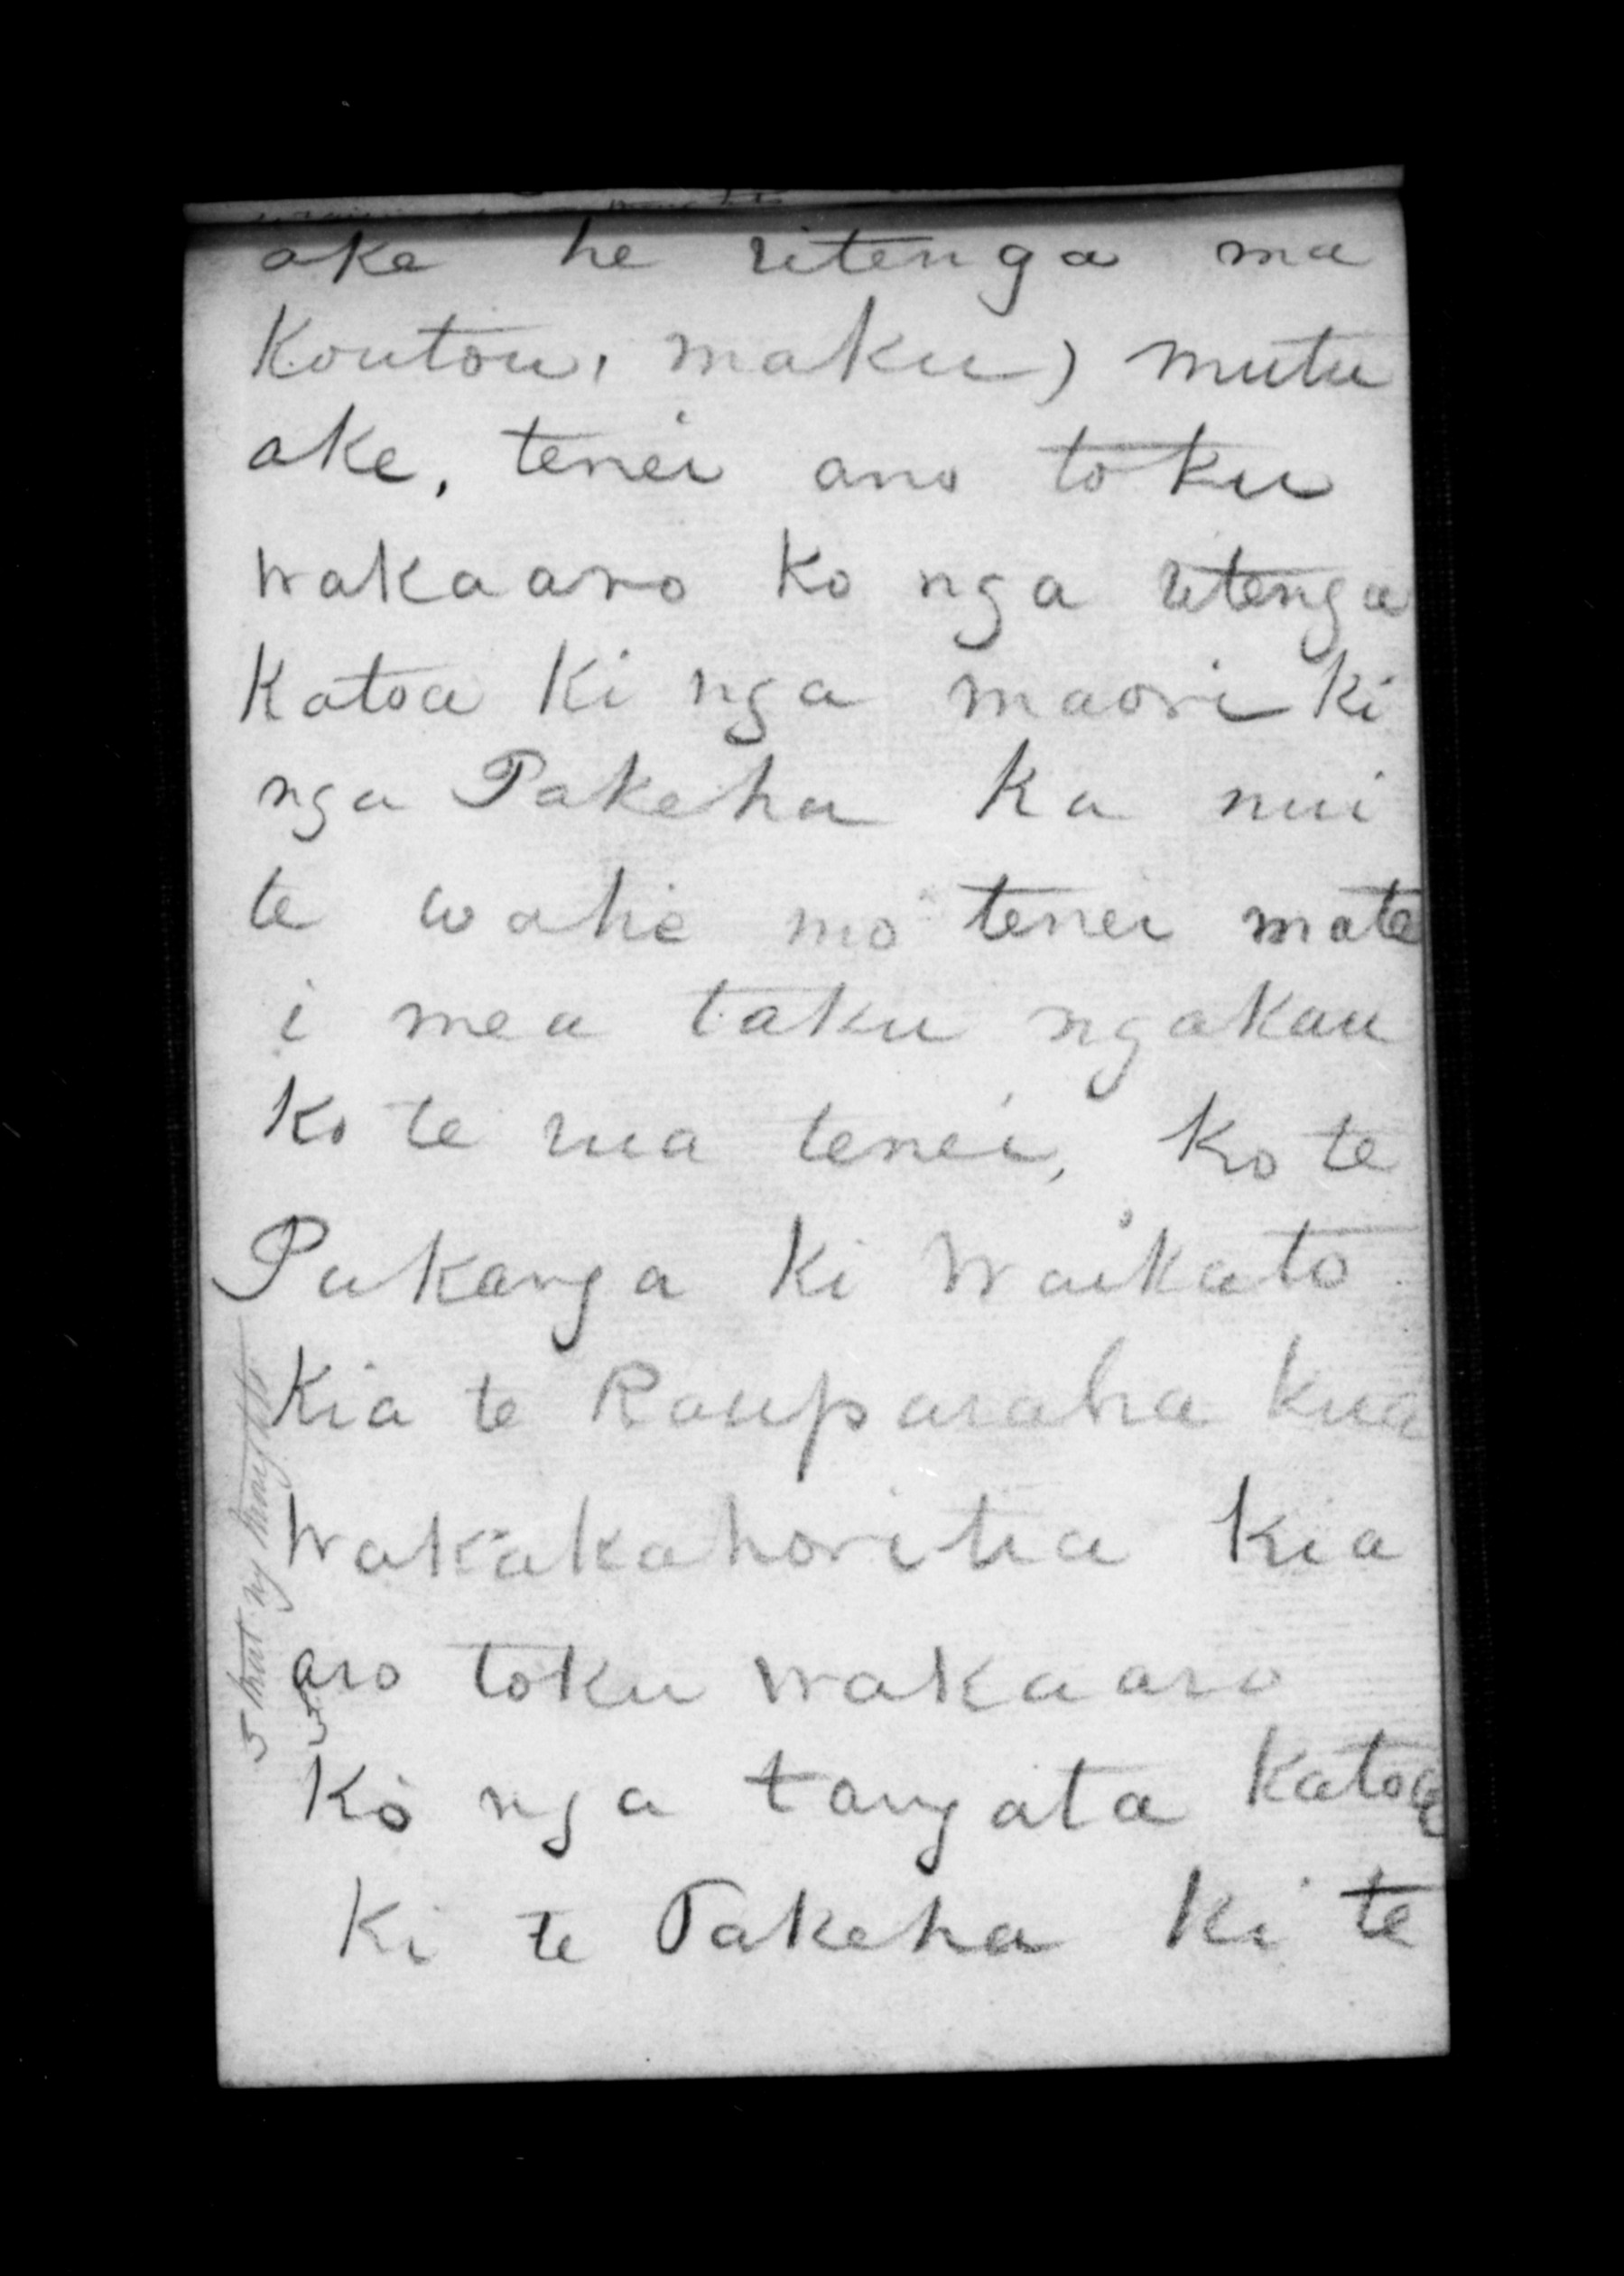 ake he ritenga ma
Koutou, maku) mutu
ake, tenei ano toku
wakaaro ko nga ritenga
Katoa Ki nga maori Ki
nga Pakeha Ka nui
te wahe mo tenei mate
i mea taku ngakau
Ko te rua tenei, ko te
Pakanga Ki Waikato
Kia te Rauparaha kua
Wakakahoritia Kia
aro toku wakaaro
5
Ko nga tangata Katoa
Ki te Pakeha Ki te
5 that my thoughts